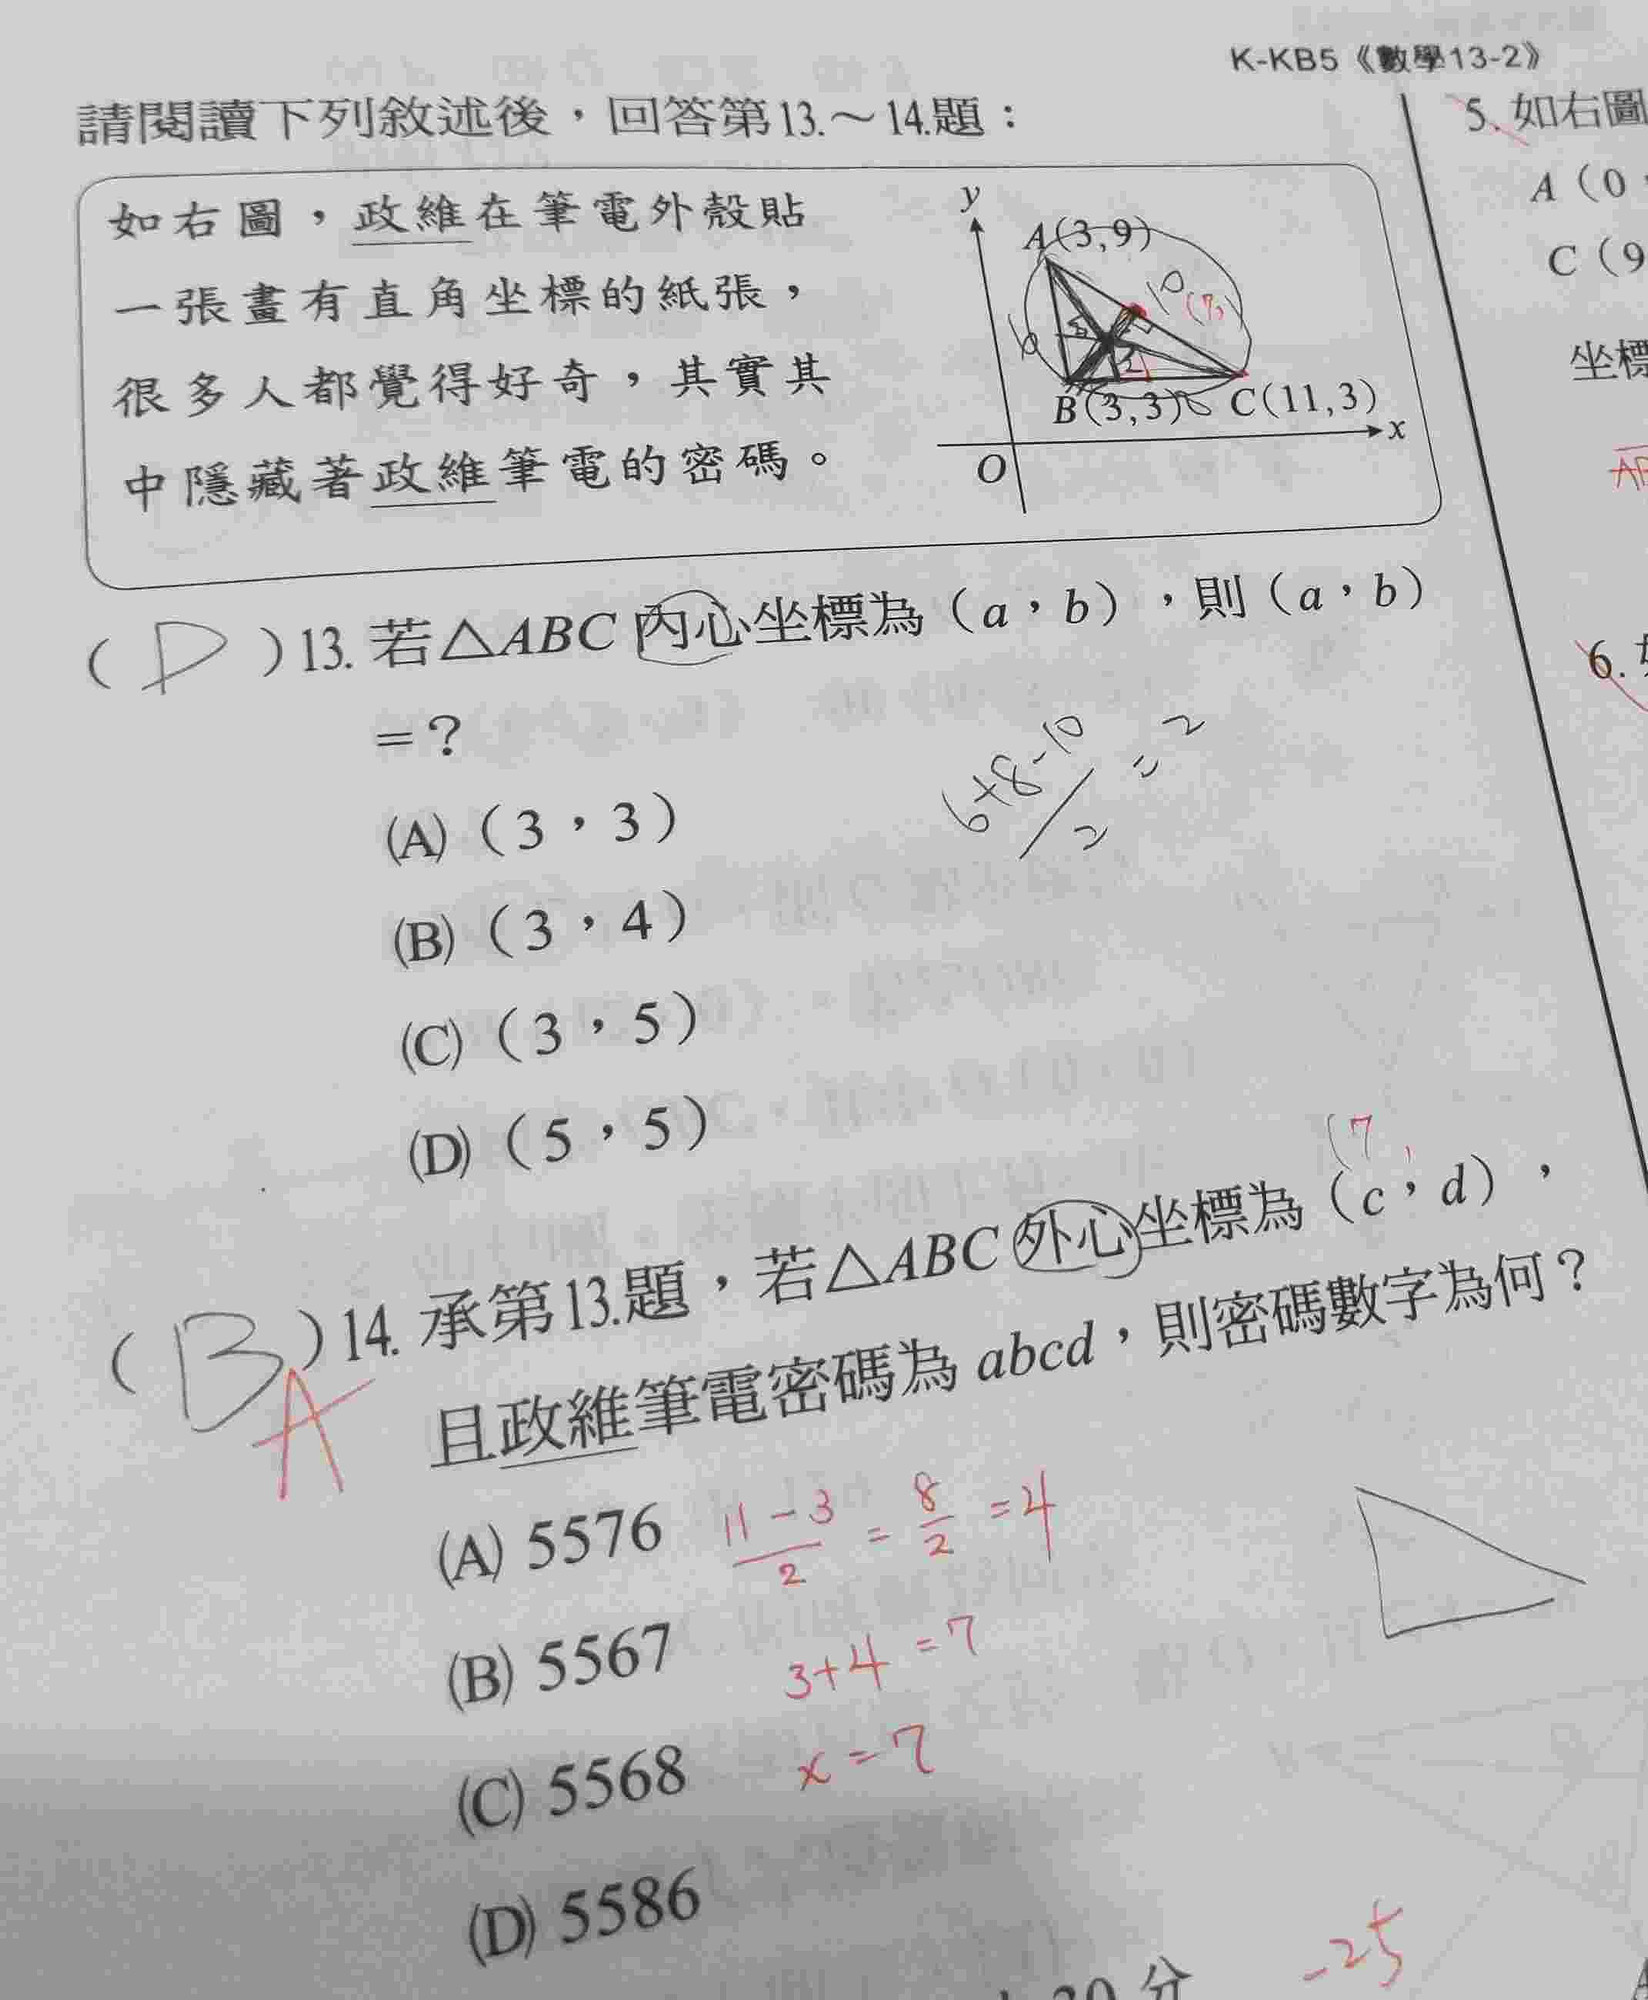 K-KB5《數學13-2》
請閱讀下列敘述後，回答第13.～14.題：
如右圖，政維在筆電外殼貼
一張畫有直角坐標的紙張，
很多人都覺得好奇，其實其
中隱藏著政維筆電的密碼。
y
A(3,9)
10
(7,
6
2
B(3,3)
8
C(11,3)
x
O
( D )13. 若△ABC 內心坐標為（a，b），則（a，b）
＝？
6+8-10/2 = 2
(A)（3，3）
(B)（3，4）
(C)（3，5）
(D)（5，5）
(7,
( B )14. 承第13.題，若△ABC 外心坐標為（c，d），
A
且政維筆電密碼為 abcd，則密碼數字為何？
(A) 5576
11-3/2 = 8/2 = 4
(B) 5567
3+4=7
(C) 5568
x=7
(D) 5586
-25
分
5. 如右圖
A（0，
C（9
坐標
6.